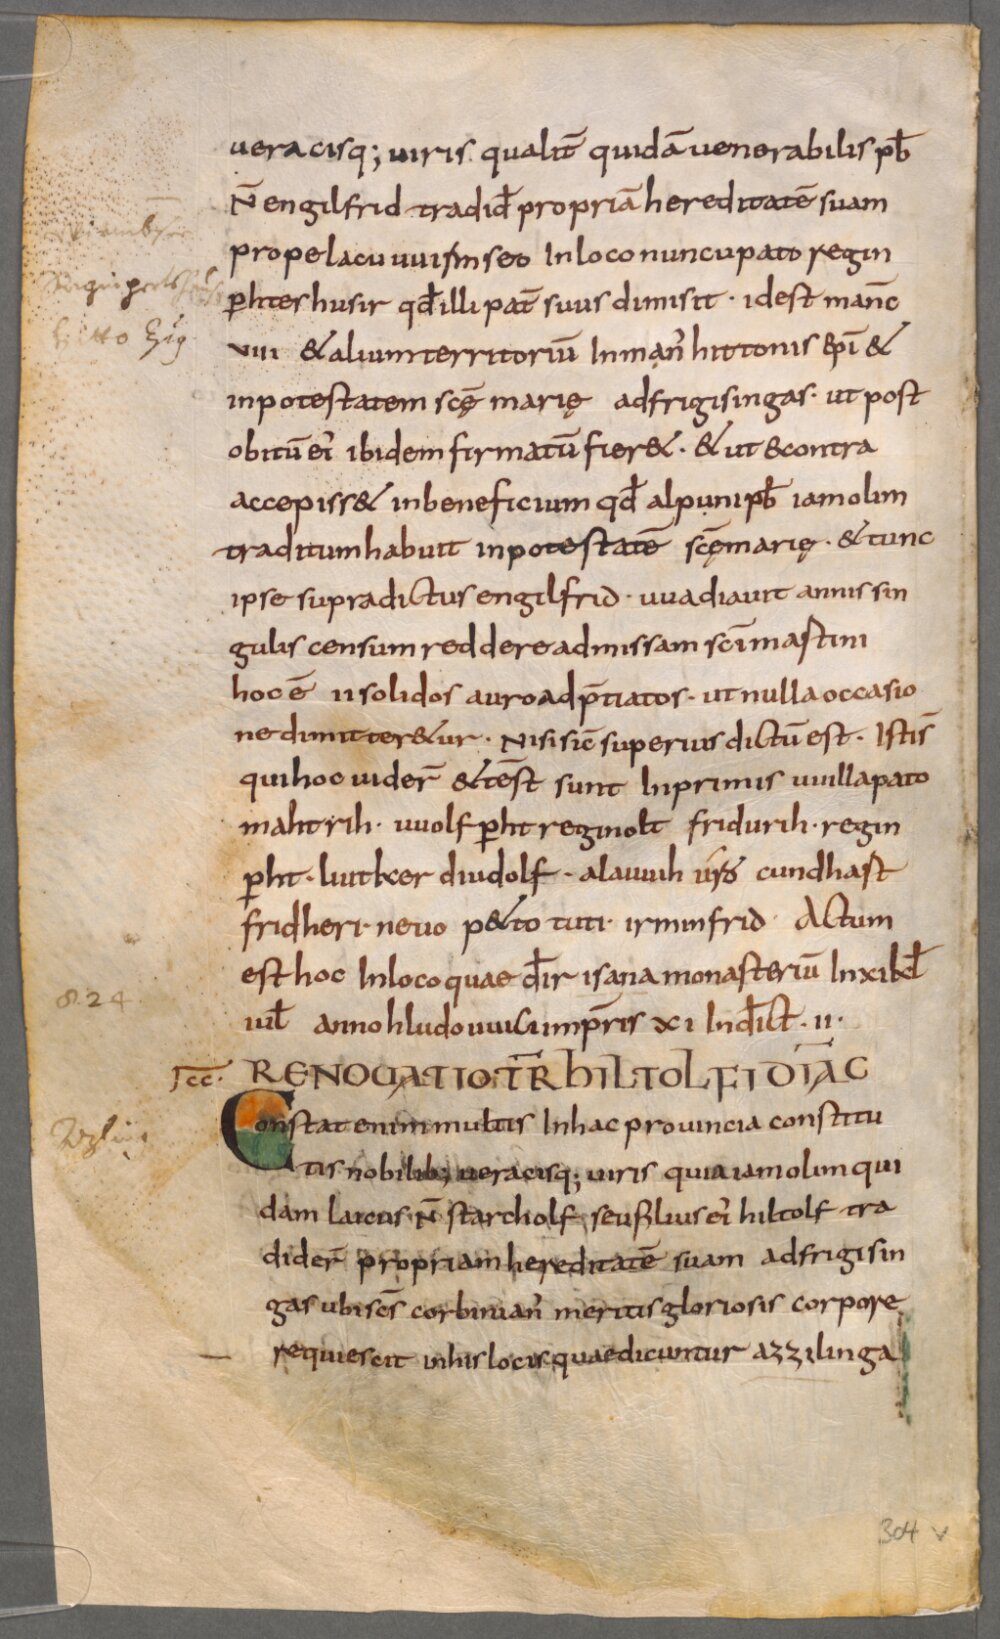 ueracisq; uiris qualit̄ quidā uenerabilis pb̄
N̄ engilfrid tradid̄ propriā hereditatē suam
prope lacu uuirmseo In loco nuncupato regin
p̱htes husir qd̄ illi pat̄ suus dimisit · id est manc̄
VIII & alium territoriū In man᾿ hittonis ep̄i &
in potestatem scę̄ marię ad frigisingas · ut post
obitū ei᾿ ibidem firmatū fier& · & ut econtra
accepiss& in beneficium qd̄ alpuni pb̄ iam olim
traditum habuit in potestatē scę̄ marię · & tunc
ipse supradictus engilfrid · uuadiauit annis sin
gulis censum reddere ad missam sc̄i martini
hoc ē II solidos auro adp̄tiatos · ut nulla occasio
ne dimitter&ur · Nisi sic̄ superius dictū est · Istis̄
qui hoc uider̄ & tēst sunt In primis uuillapato
mahtrih · uuolfp̱ht reginolt fridurih · regin
p̱ht · luitker diudolf · alauuih cundhast
fridheri · neuo p&to tuti · irminfrid · Actum
est hoc In loco quae dr̄ isana monasteriū In XI kl̄
iul̄ anno hludouuici imp̄ris XI Ind̄ict · II ·
824
RENOUATIO TR̄ HILTOLFI DIAC̄
Constat enim multis In hac prouincia constitu
tis nobilib; ueracisq; uiris quia iam olim qui
dam laicus N̄ starcholf seu filius ei᾿ hiltolf tra
dider̄ propriam hereditatē suam ad frigisin
gas ubi sc̄s corbinian᾿ meritis gloriosis corpore
requiescit in his locis quae dicuntur azzilinga
304 v